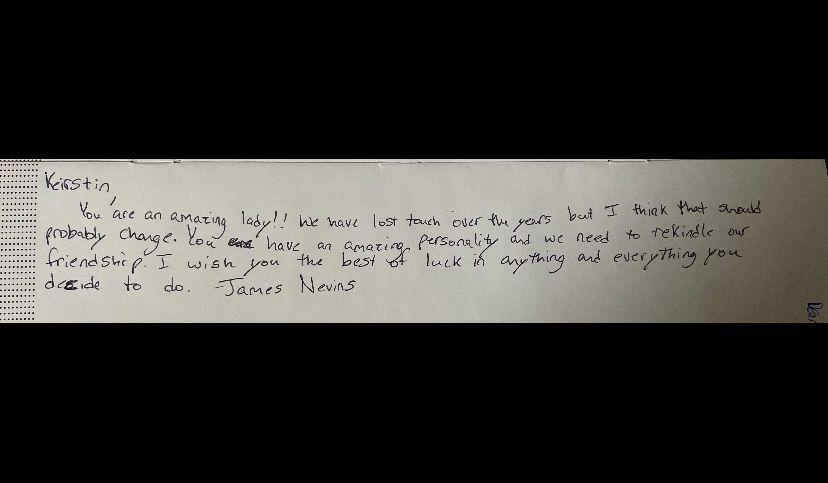 Keirstin,
You are an amazing lady!! We have lost touch over the years but I think that should
probably change. You have an amazing personality and we need to rekindle our
friendship. I wish you the best of luck in anything and everything you
decide to do. -James Nevins